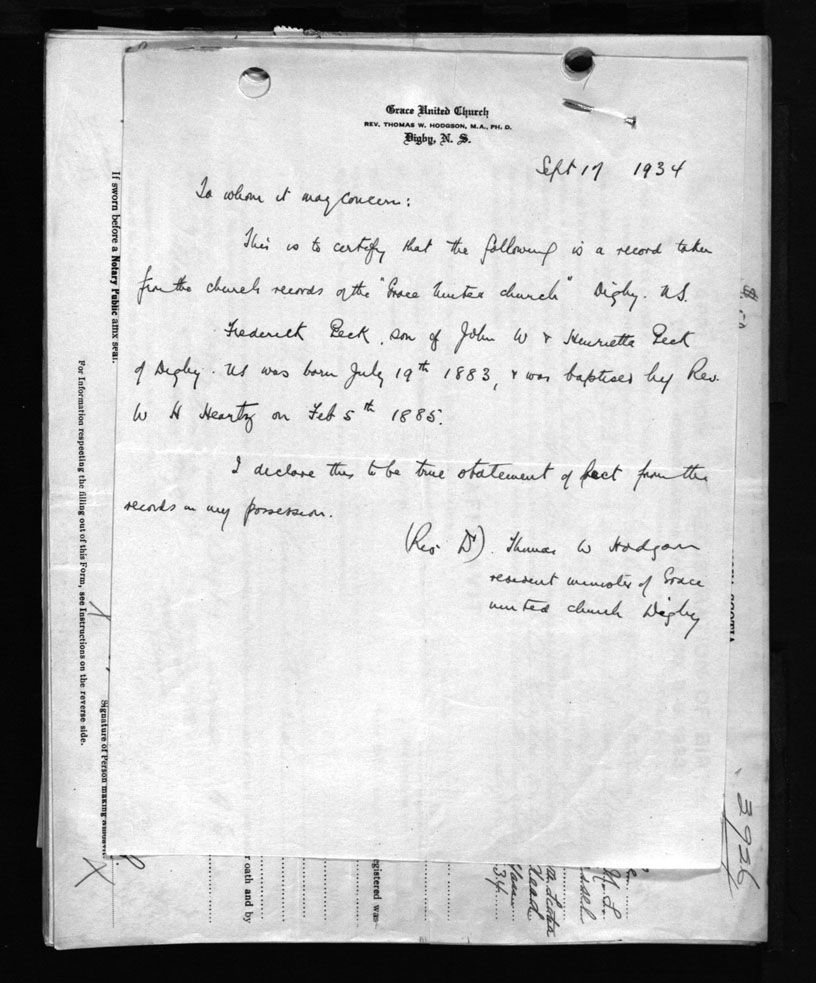 Grace United Church
REV. THOMAS W. HODGSON, M.A., PH. D.
Digby, N. S.
Sept 17 1934
To whom it may concern:
This is to certify that the following is a record taken
from the church records of the "Grace United church" Digby. N.S.
Frederick Peck, son of John W & Henrietta Peck
of Digby. NS was born July 19th 1883, & was baptised by Rev.
W H Heartz on Feb 5th 1885.
I declare this to be true statement of fact from the
records in my possession.
(Rev Dr). Thomas W Hodgson
resident minister of Grace
united church Digby
If sworn before a Notary Public affix seal.
For Information respecting the filling out of this Form, see Instructions on the reverse side.
Signature of Person making
X
r oath and by
egistered was
34
3926